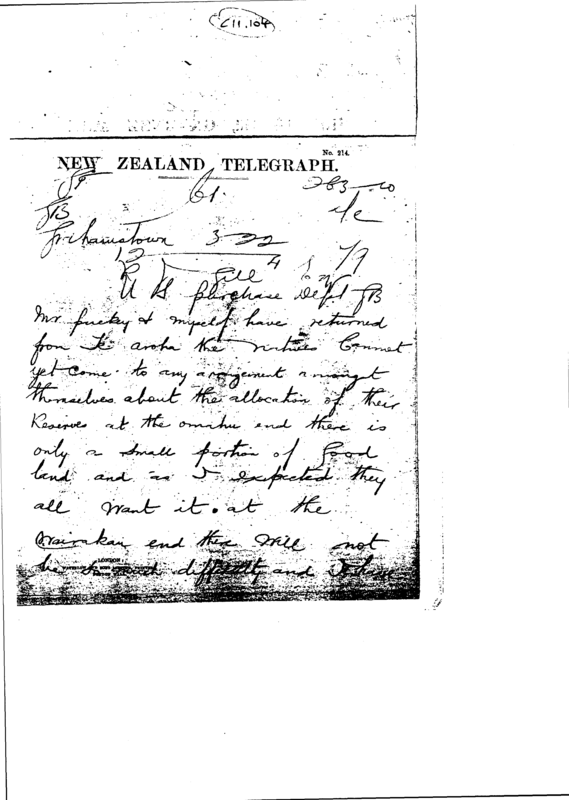 C11.104
No. 214.
NEW ZEALAND TELEGRAPH.
263-10
Grahamstown 3-22
R Gill
purchase Dept
Mr puckey & myself have returned
from Te aroha the natives Cannot
yet come to any arangement amongst
themselves about the allocation of their
Reserves at the omahu end there is
only a small portion of good
land and as I expected they
all want it. at the
Wairakau end there will not
be so much difficulty and I
LONDON